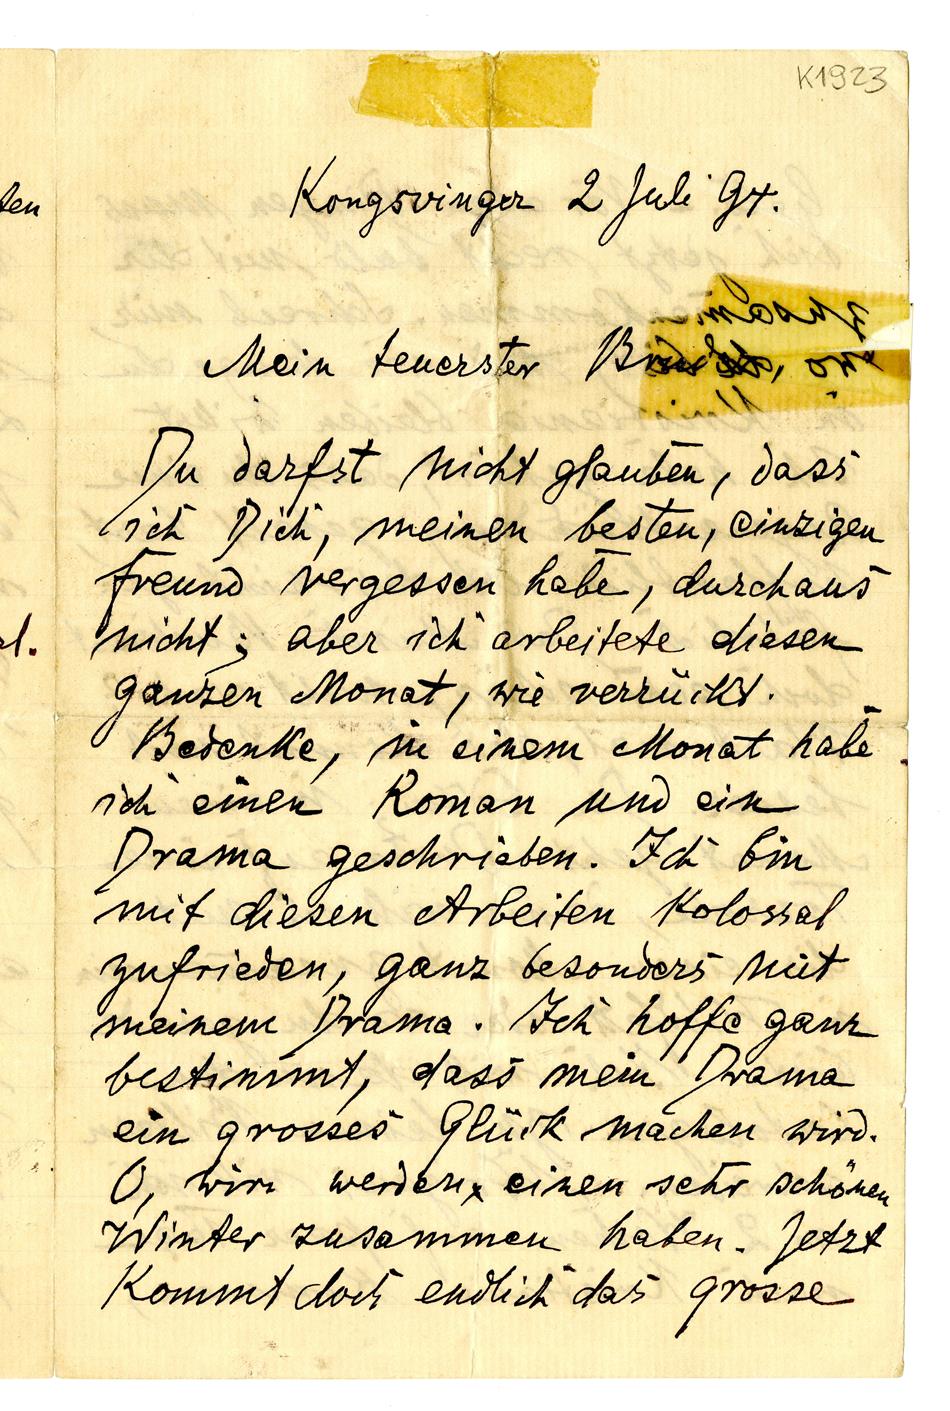 K1923
ten
Kongsvinger 2 Juli 94.
Mein teuerster
Du darfst nicht glauben, dass
ich Dich, meinen besten, einzigen
Freund vergessen habe, durchaus
nicht; aber ich arbeitete diesen
ganzen Monat, wie verrückt.
Bedenke, in einem Monat habe
ich einen Roman und ein
Drama geschrieben. Ich bin
mit diesen Arbeiten Kolossal
zufrieden, ganz besonders mit
meinem Drama. Ich hoffe ganz
bestimmt, dass mein Drama
ein grosses Glück machen wird.
O, wir werden einen sehr schönen
Winter zusammen haben. Jetzt
Kommt doch endlich das grosse